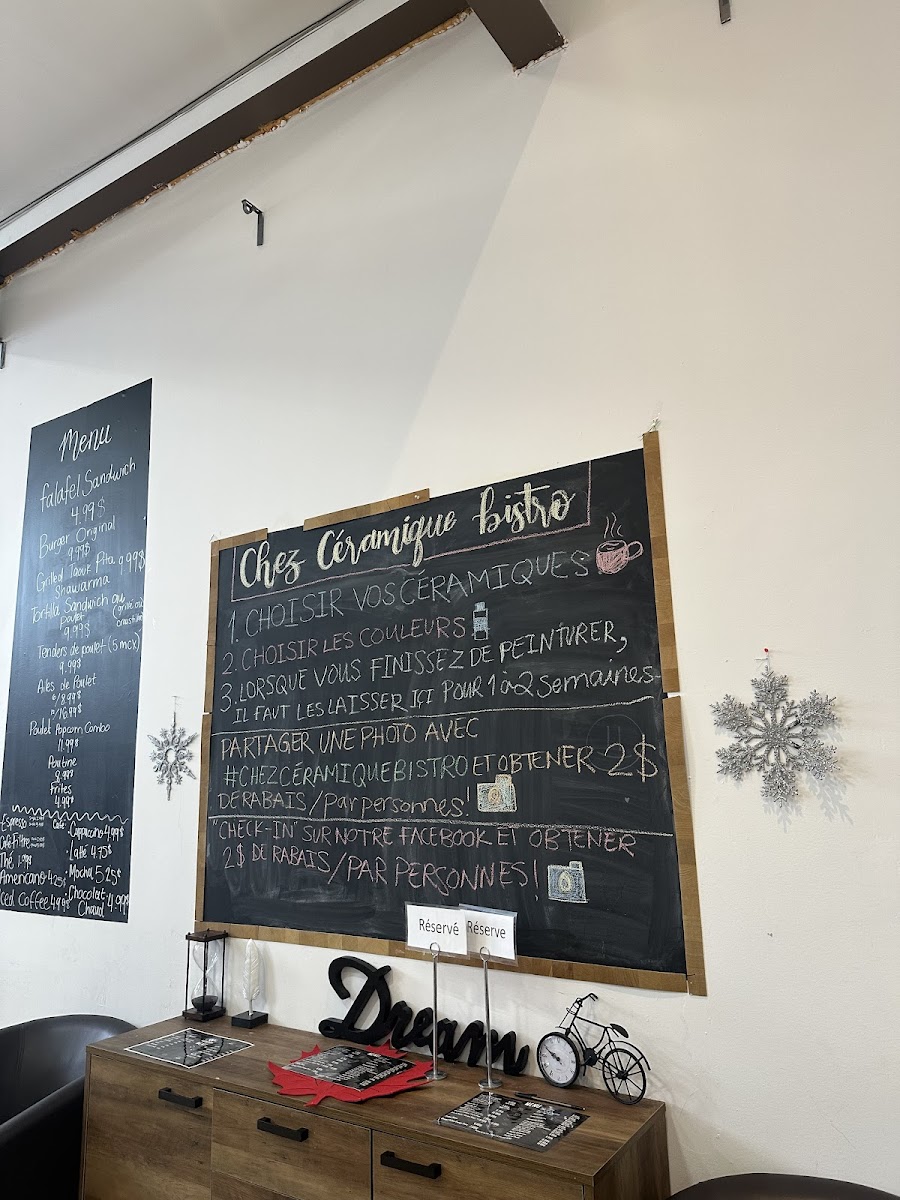 Menu
falafel Sandwich
4.99$
Burger Original
9.99$
Grilled Taouk Pita 9.99$
Shawarma
Tortilla Sandwich au
poulet
9.99$
Tenders de poulet (5 mcx)
9.99$
Ailes de Poulet
6/8.99$
Poulet Popcorn Combo
11.99$
Poutine
8.99$
Frites
4.99$
Espresso
Café Filtre
Thé 1.99$
Americano 4.25$
Iced Coffee 4.99$
Café:
Cappucino 4.99$
Latté 4.75$
Mocha 5.25$
Chocolat 4.99$
Chaud
Chez Céramique bistro
1. CHOISIR VOS CÉRAMIQUES
2. CHOISIR LES COULEURS
3. LORSQUE VOUS FINISSEZ DE PEINTURER,
IL FAUT LES LAISSER ICI POUR 1 à 2 semaines
PARTAGER UNE PHOTO AVEC
#CHEZCÉRAMIQUEBISTRO ET OBTENER 2$
DE RABAIS / par personnes!
"CHECK-IN" SUR NOTRE FACEBOOK ET OBTENER
2$ DE RABAIS / PAR PERSONNES!
Réservé
Réserve
Dream